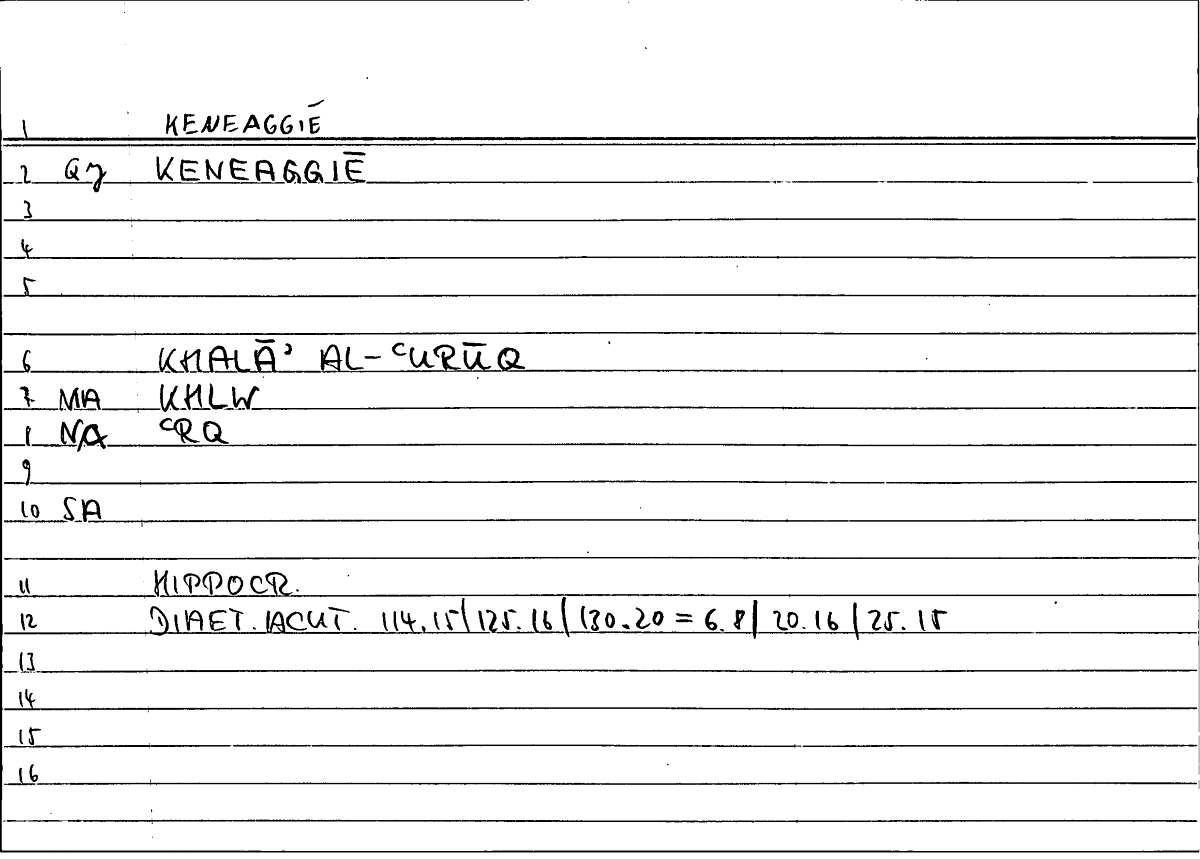 1 KENEAGGIĒ
2 Q7 KENEAGGIĒ
3
4
5
6 KHALĀʾ AL-ʿURŪQ
7 MA KHLW
8 NA ʿRQ
9
10 SA
11 HIPPOCR.
12 DIAET. ACUT. 114.15|125.16|130.20 = 6.8|20.16|25.15
13
14
15
16